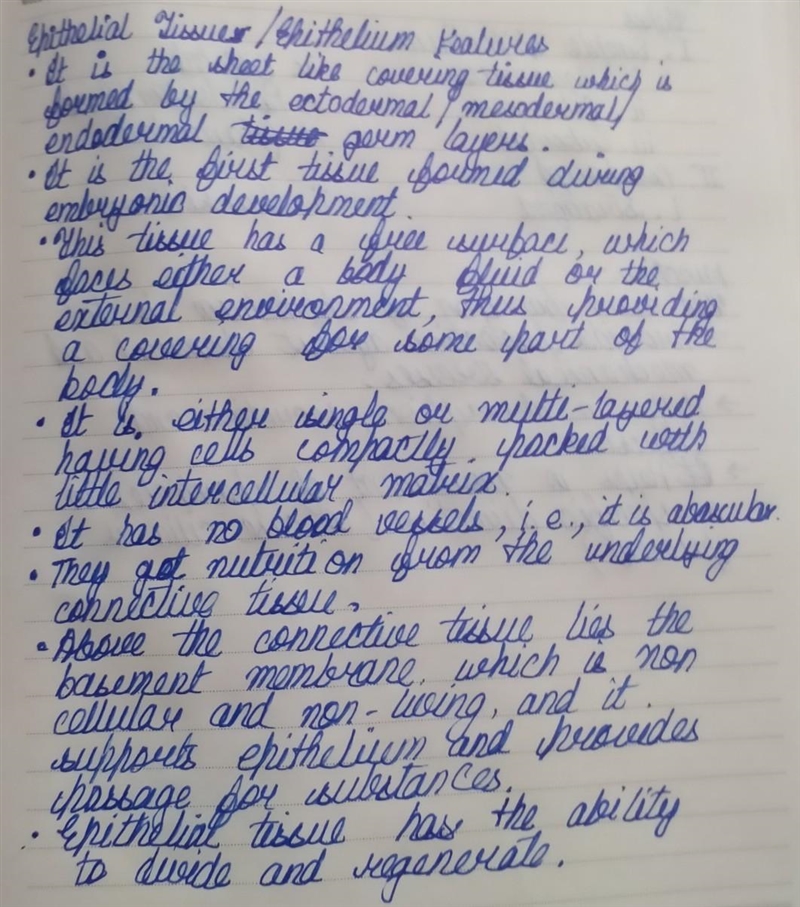 Epithelial Tissue / Epithelium Features
• It is the sheet like covering tissue which is
formed by the ectodermal / mesodermal /
endodermal tissue germ layers.
• It is the first tissue formed during
embryonic development.
• This tissue has a free surface, which
faces either a body fluid or the
external environment, thus providing
a covering for some part of the
body.
• It is either single or multi-layered
having cells compactly packed with
little intercellular matrix.
• It has no blood vessels, i.e., it is abascular.
• They get nutrition from the underlying
connective tissue.
• Above the connective tissue lies the
basement membrane, which is non
cellular and non-living, and it
supports epithelium and provides
passage for substances.
• Epithelial tissue has the ability
to divide and regenerate.